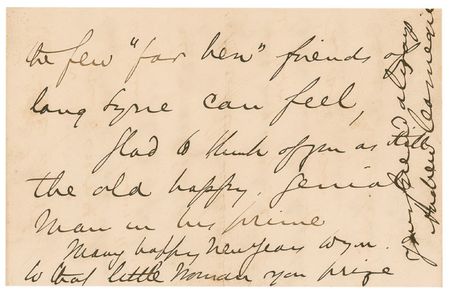 the few "far ben" friends of
lang syne can feel,
Glad to think of you as still
the old happy, genial
man in his prime
Many happy New Years to you.
to that little Woman you prize
Your friend always
Andrew Carnegie